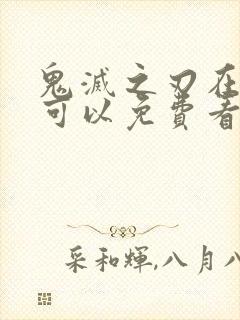 鬼滅之刃在
可以免費看
采和輝,八月八